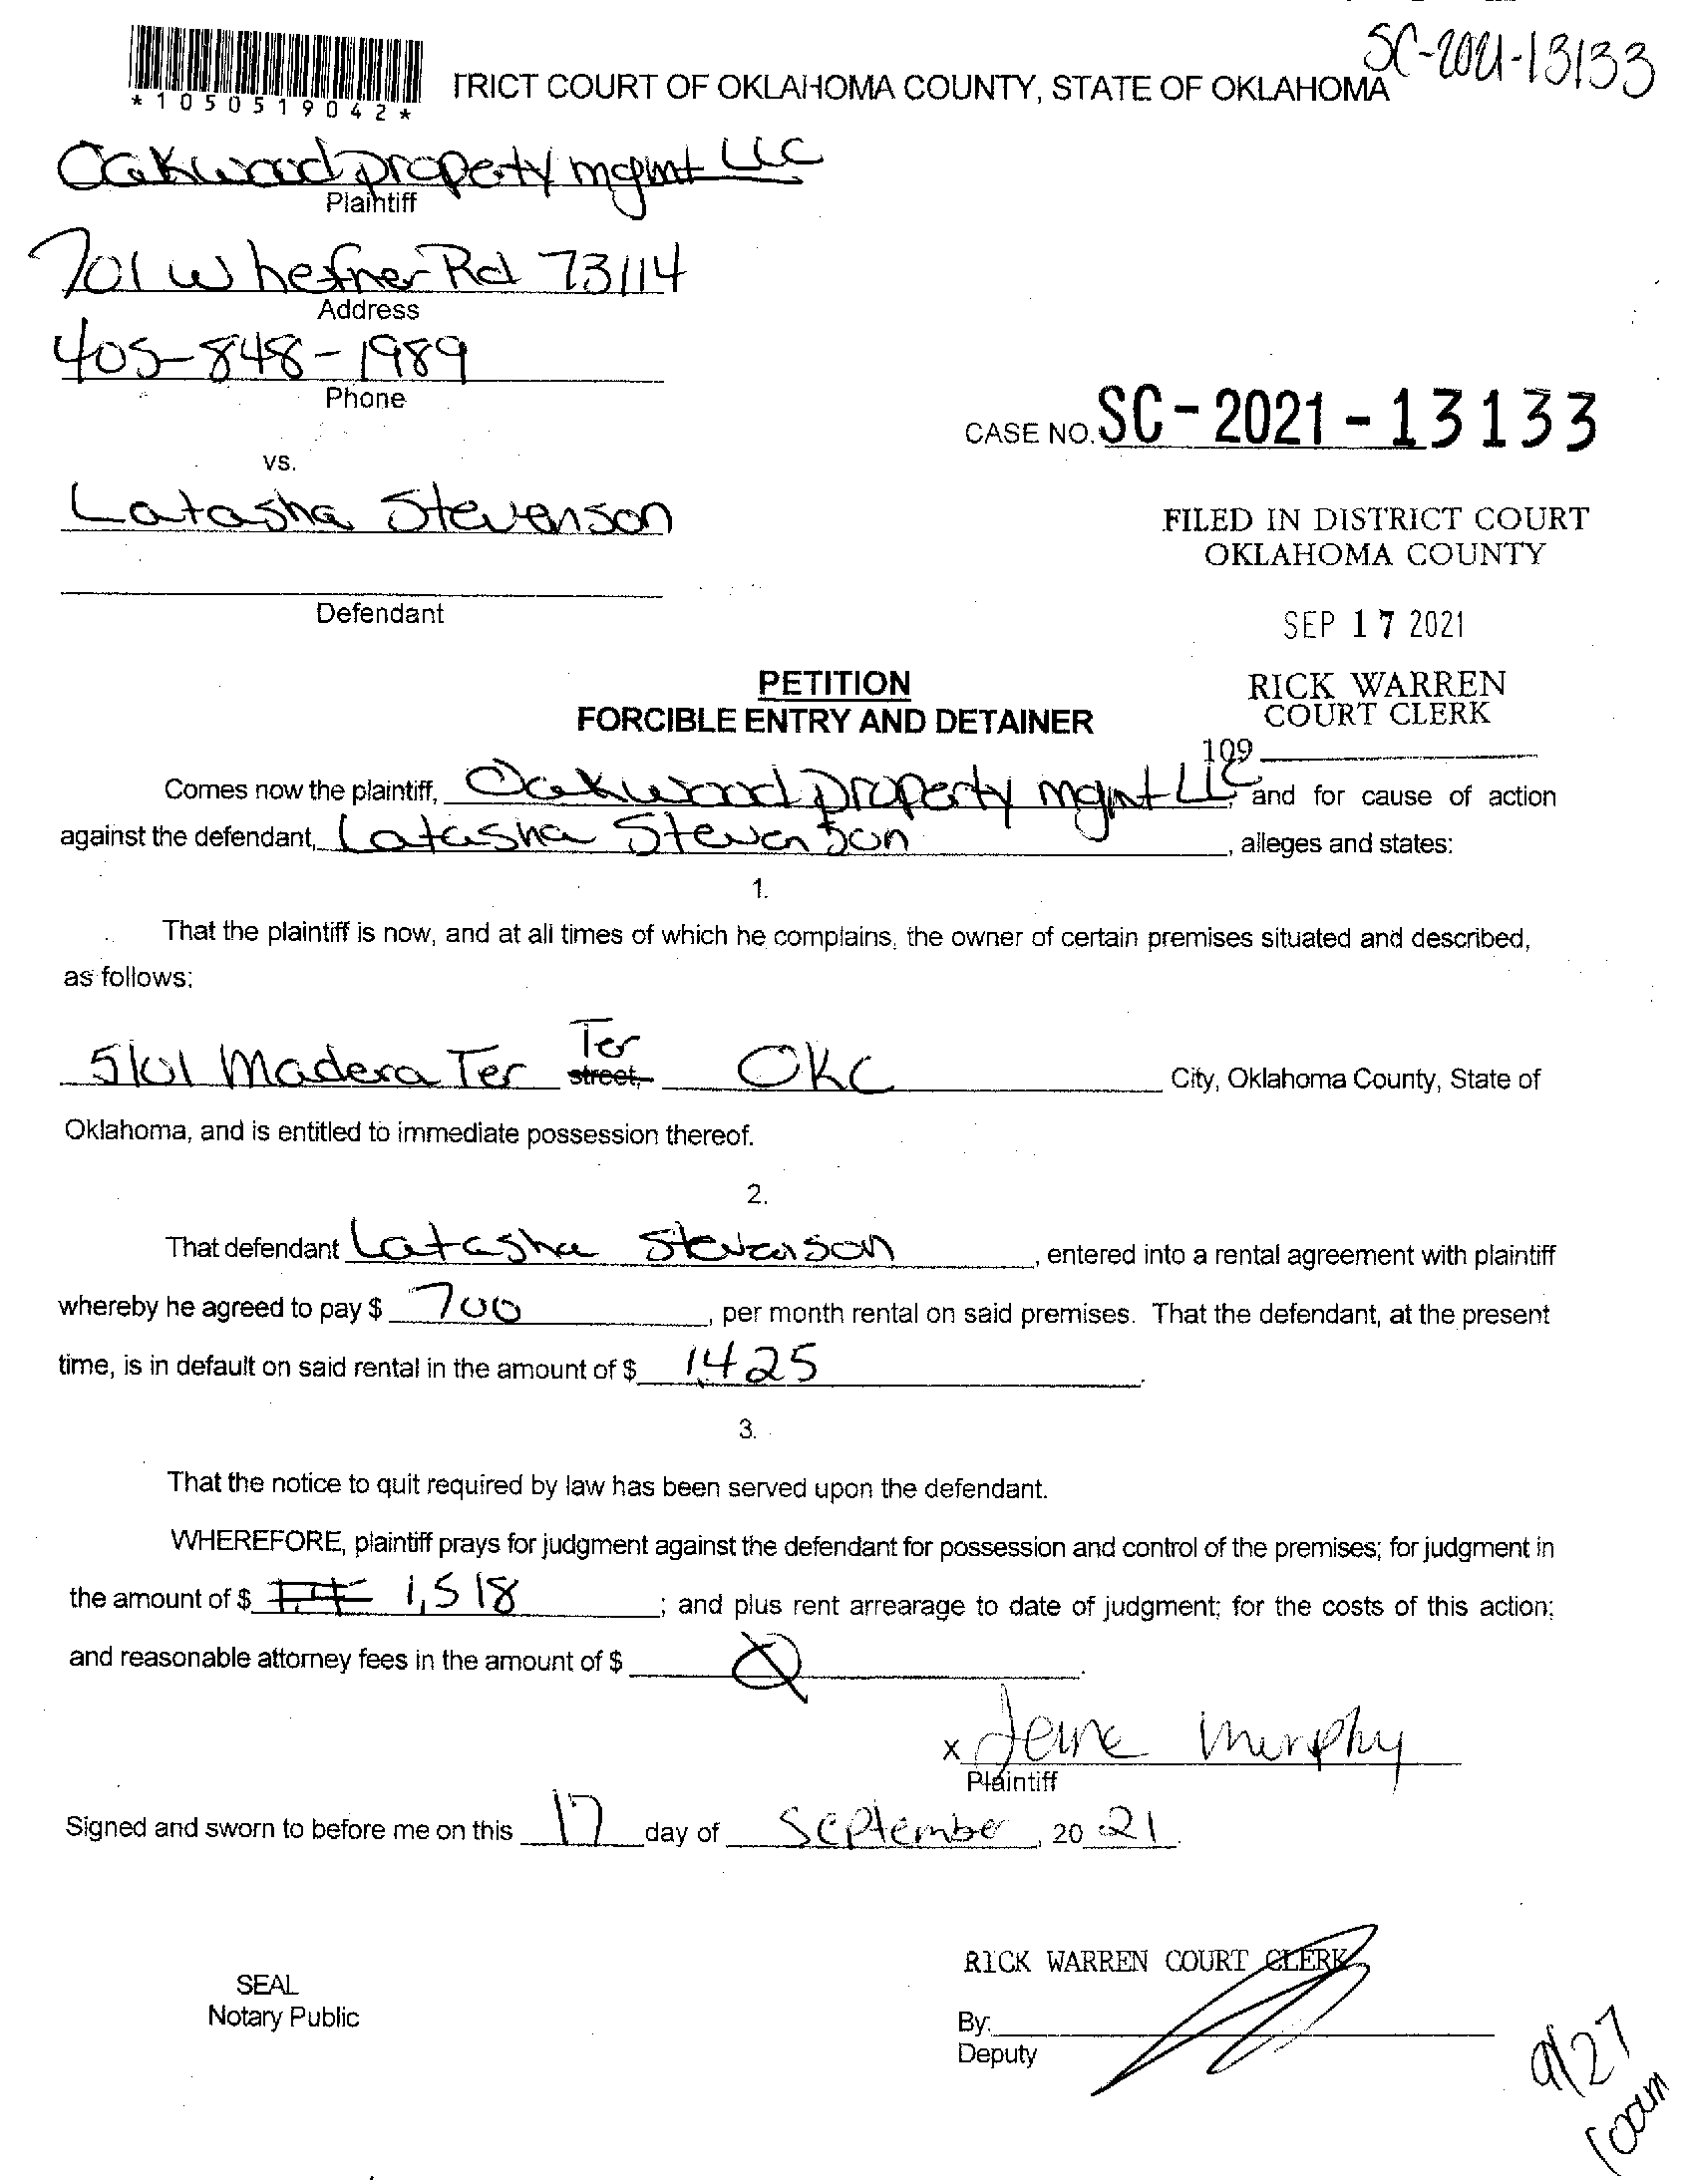 SC-2021-13133
*1050519042*
TRICT COURT OF OKLAHOMA COUNTY, STATE OF OKLAHOMA
Oakwood property mgmt LLC
Plaintiff
701 W hefner Rd 73114
Address
405-848-1989
Phone
CASE NO. SC-2021-13133
vs.
Latasha Stevenson
FILED IN DISTRICT COURT
OKLAHOMA COUNTY
Defendant
SEP 17 2021
PETITION
RICK WARREN
FORCIBLE ENTRY AND DETAINER
COURT CLERK
109
Comes now the plaintiff, Oakwood property mgmt LLC, and for cause of action
against the defendant, Latasha Stevenson, alleges and states:
1.
That the plaintiff is now, and at all times of which he complains, the owner of certain premises situated and described,
as follows:
Ter
Madera Ter street, OKC City, Oklahoma County, State of
Oklahoma, and is entitled to immediate possession thereof.
2.
That defendant Latasha Stevenson, entered into a rental agreement with plaintiff
whereby he agreed to pay $ 700, per month rental on said premises. That the defendant, at the present
time, is in default on said rental in the amount of $ 1425.
3.
That the notice to quit required by law has been served upon the defendant.
WHEREFORE, plaintiff prays for judgment against the defendant for possession and control of the premises; for judgment in
the amount of $ 1,518; and plus rent arrearage to date of judgment; for the costs of this action;
and reasonable attorney fees in the amount of $
x Murphy
Plaintiff
Signed and sworn to before me on this 17 day of September, 20 21.
RICK WARREN COURT CLERK
SEAL
Notary Public
By:
Deputy
9/27